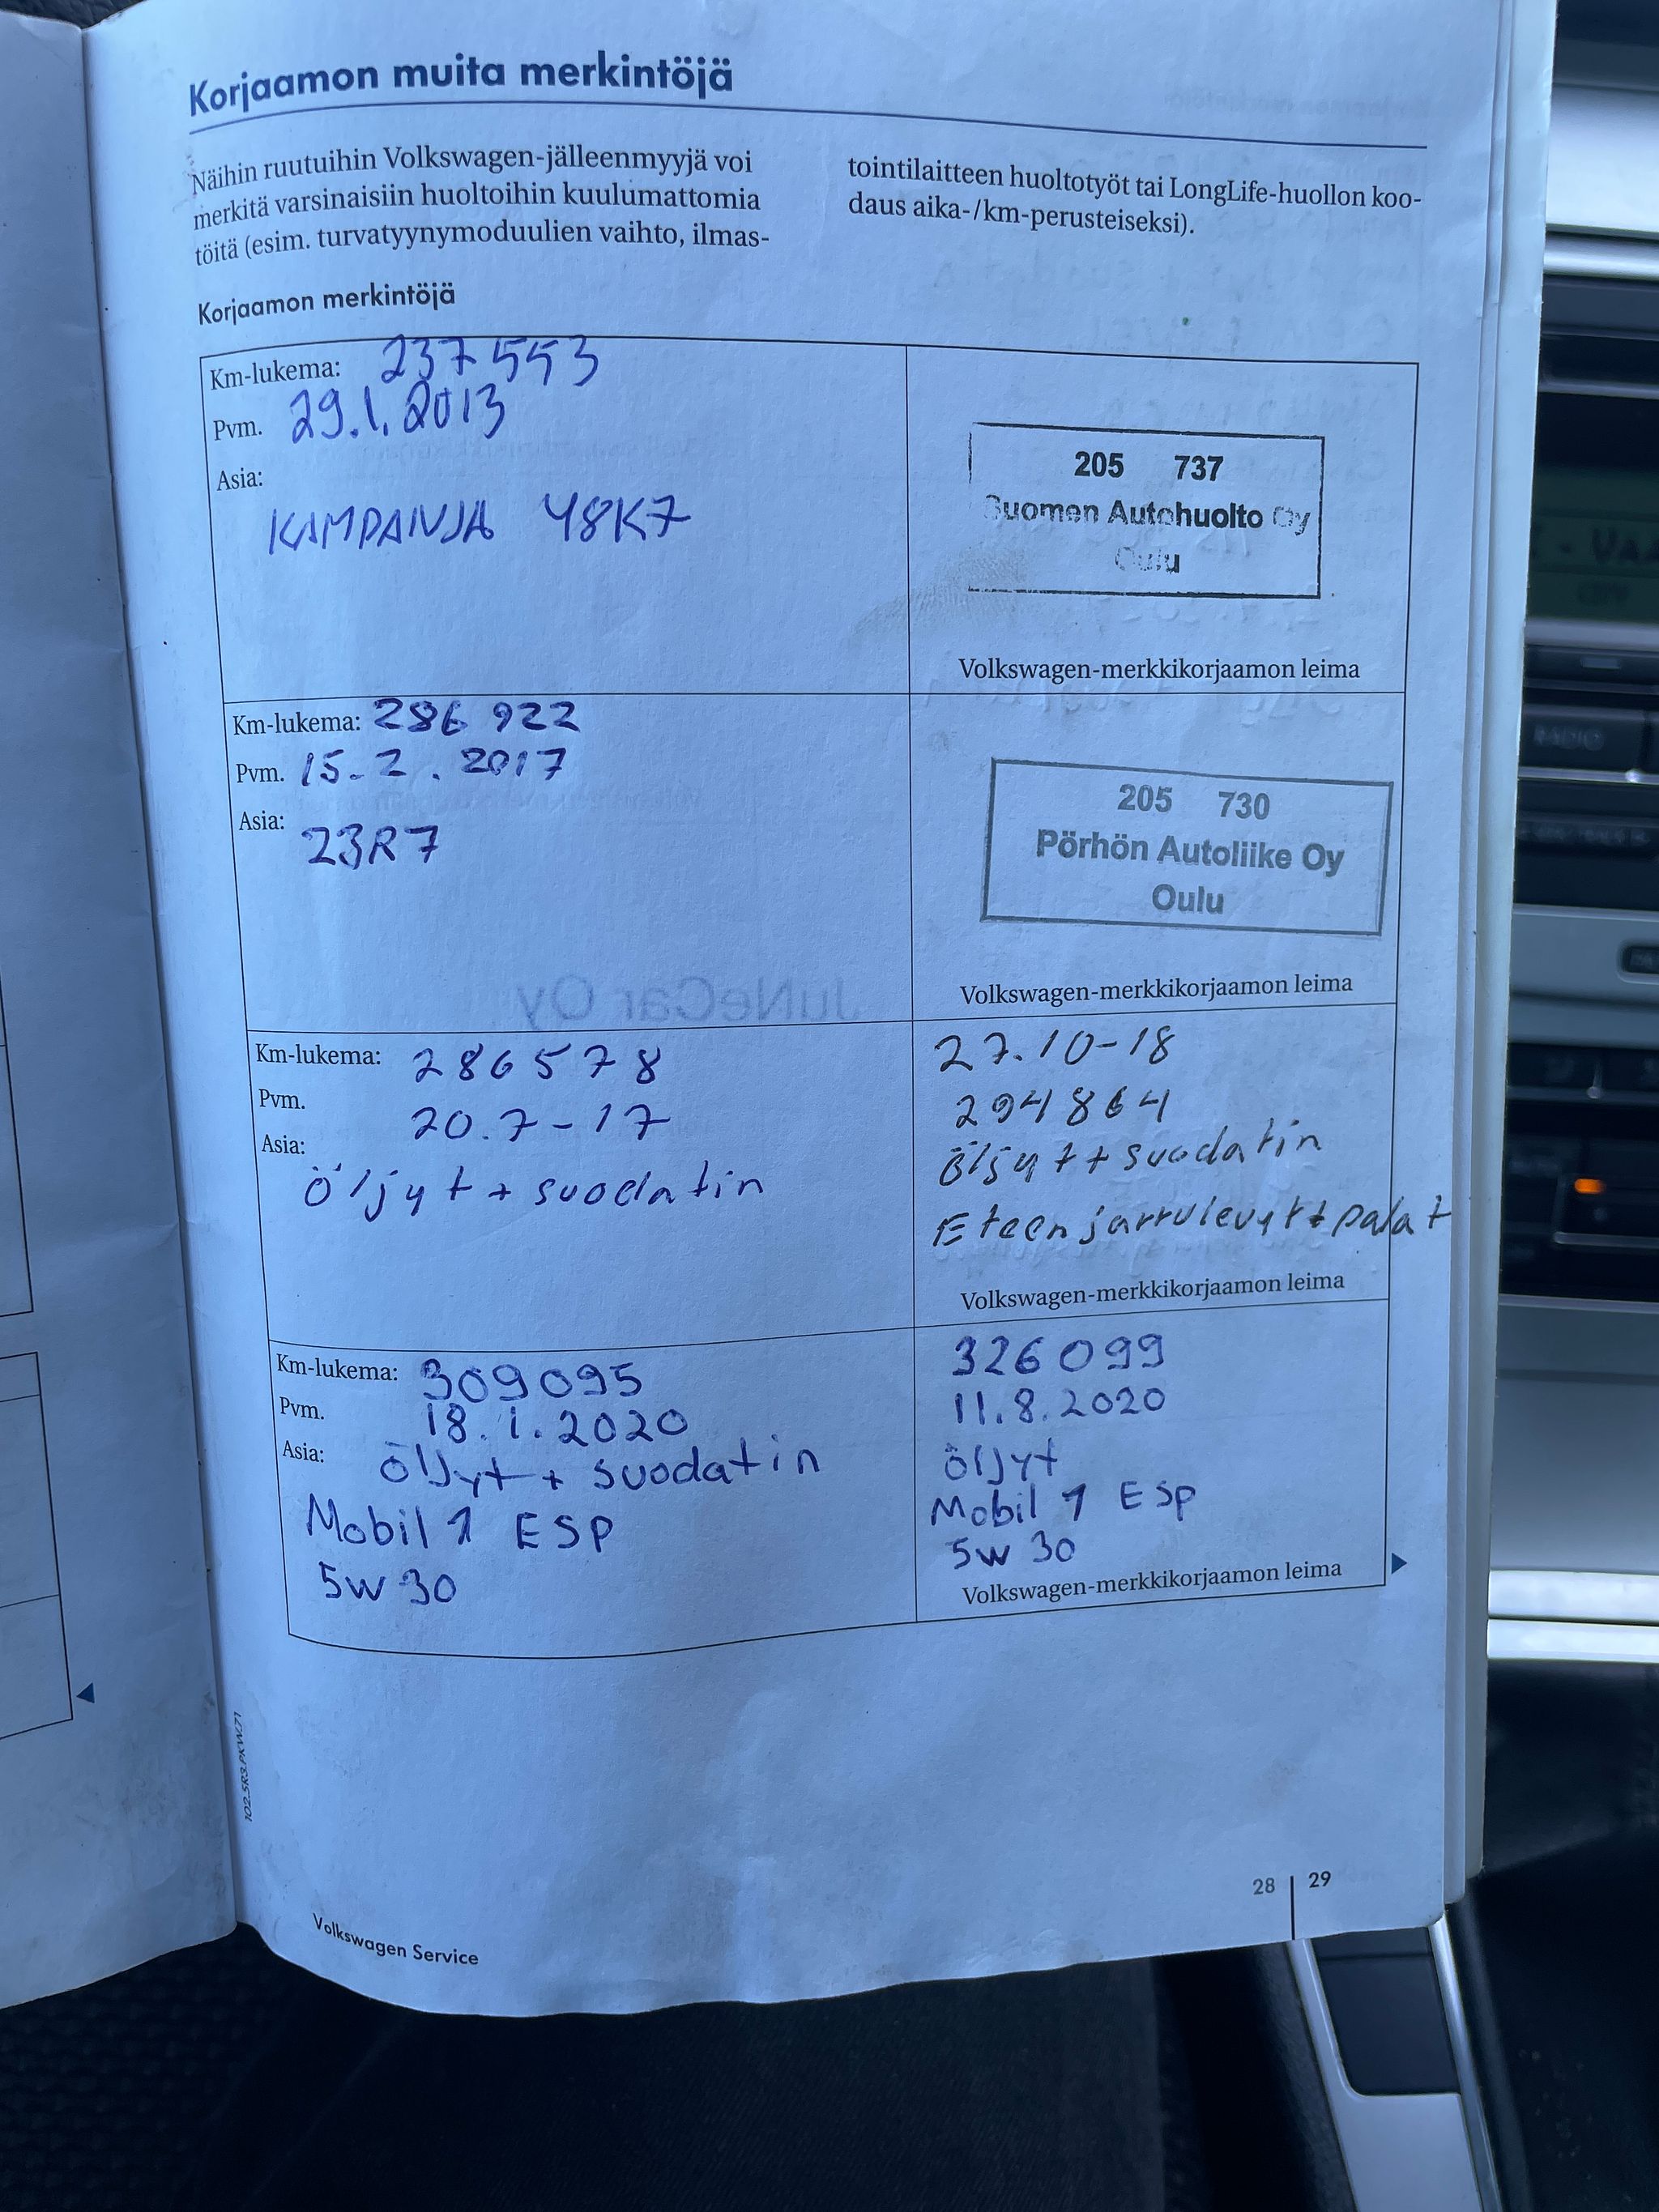 Korjaamon muita merkintöjä
Näihin ruutuihin Volkswagen-jälleenmyyjä voi
merkitä varsinaisiin huoltoihin kuulumattomia
töitä (esim. turvatyynymoduulien vaihto, ilmas-
tointilaitteen huoltotyöt tai LongLife-huollon koo-
daus aika-/km-perusteiseksi).
Korjaamon merkintöjä
Km-lukema: 237 553
Pvm. 29.1.2013
Asia:
KAMPANJA 48K7
205 737
Suomen Autohuolto Oy
Oulu
Volkswagen-merkkikorjaamon leima
Km-lukema: 286 922
Pvm. 15.2.2017
Asia:
23R7
205 730
Pörhön Autoliike Oy
Oulu
Volkswagen-merkkikorjaamon leima
JuNeCar Oy
Km-lukema: 286578
Pvm. 20.7-17
Asia:
Öljyt + suodatin
27.10-18
294864
Öljyt + suodatin
Eteen jarrulevyt + palat
Volkswagen-merkkikorjaamon leima
Km-lukema: 309095
Pvm. 18.1.2020
Asia: Öljyt + suodatin
Mobil 1 ESP
5w 30
326099
11.8.2020
öljyt
Mobil 1 ESP
5w 30
Volkswagen-merkkikorjaamon leima
102.5R3.PKW.71
28 29
Volkswagen Service
RADIO